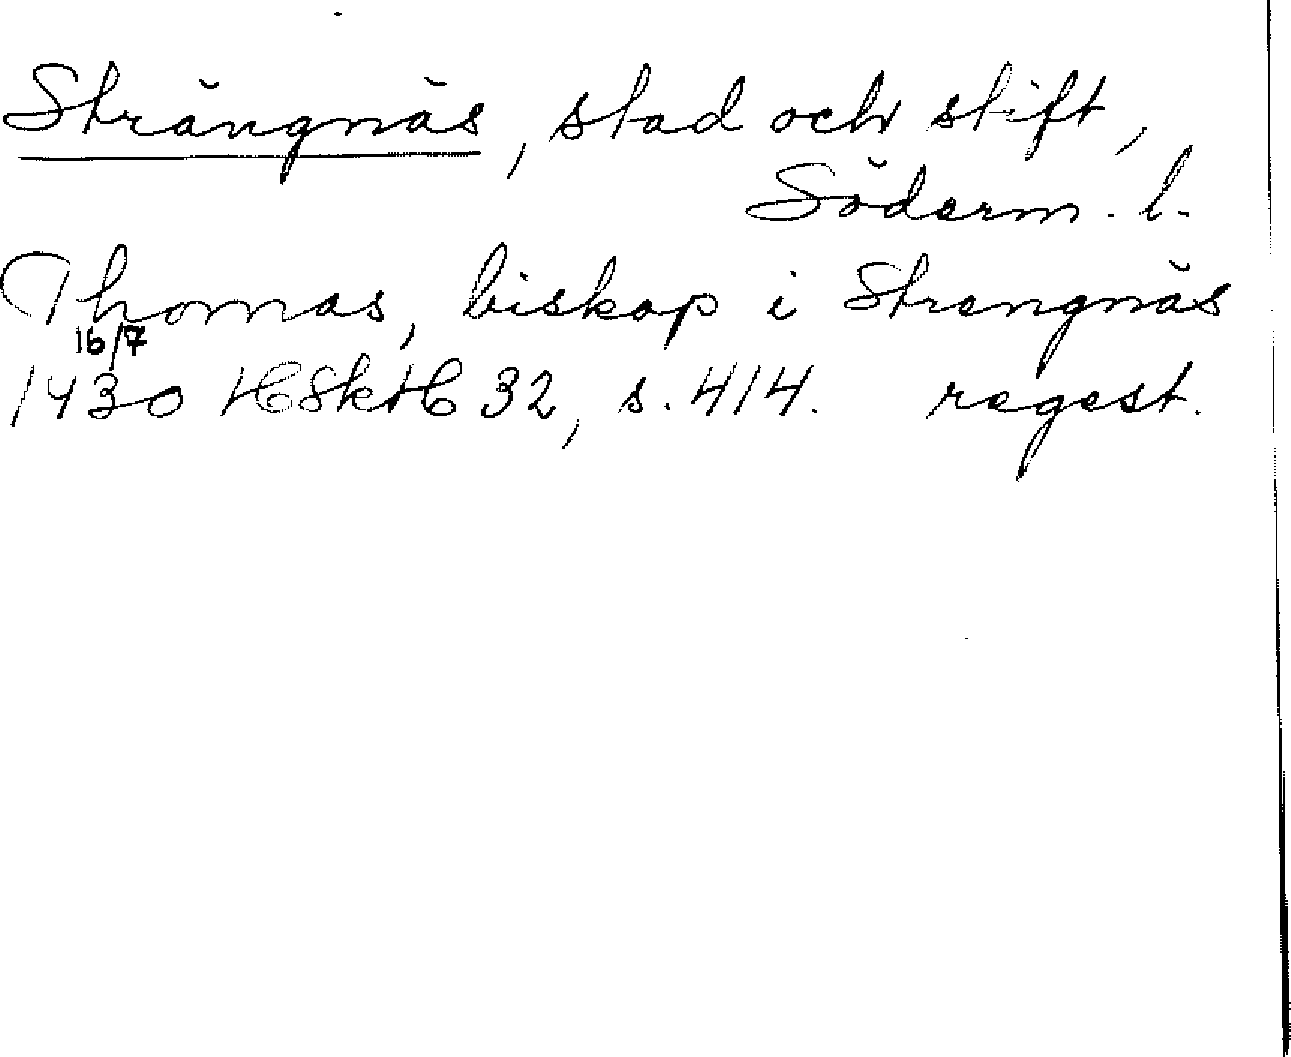 Strängnäs, stad och stift,
Söderm. l.
Thomas, biskop i Strengnäs
16/7
1430 HSkH 32, s. 414. regest.